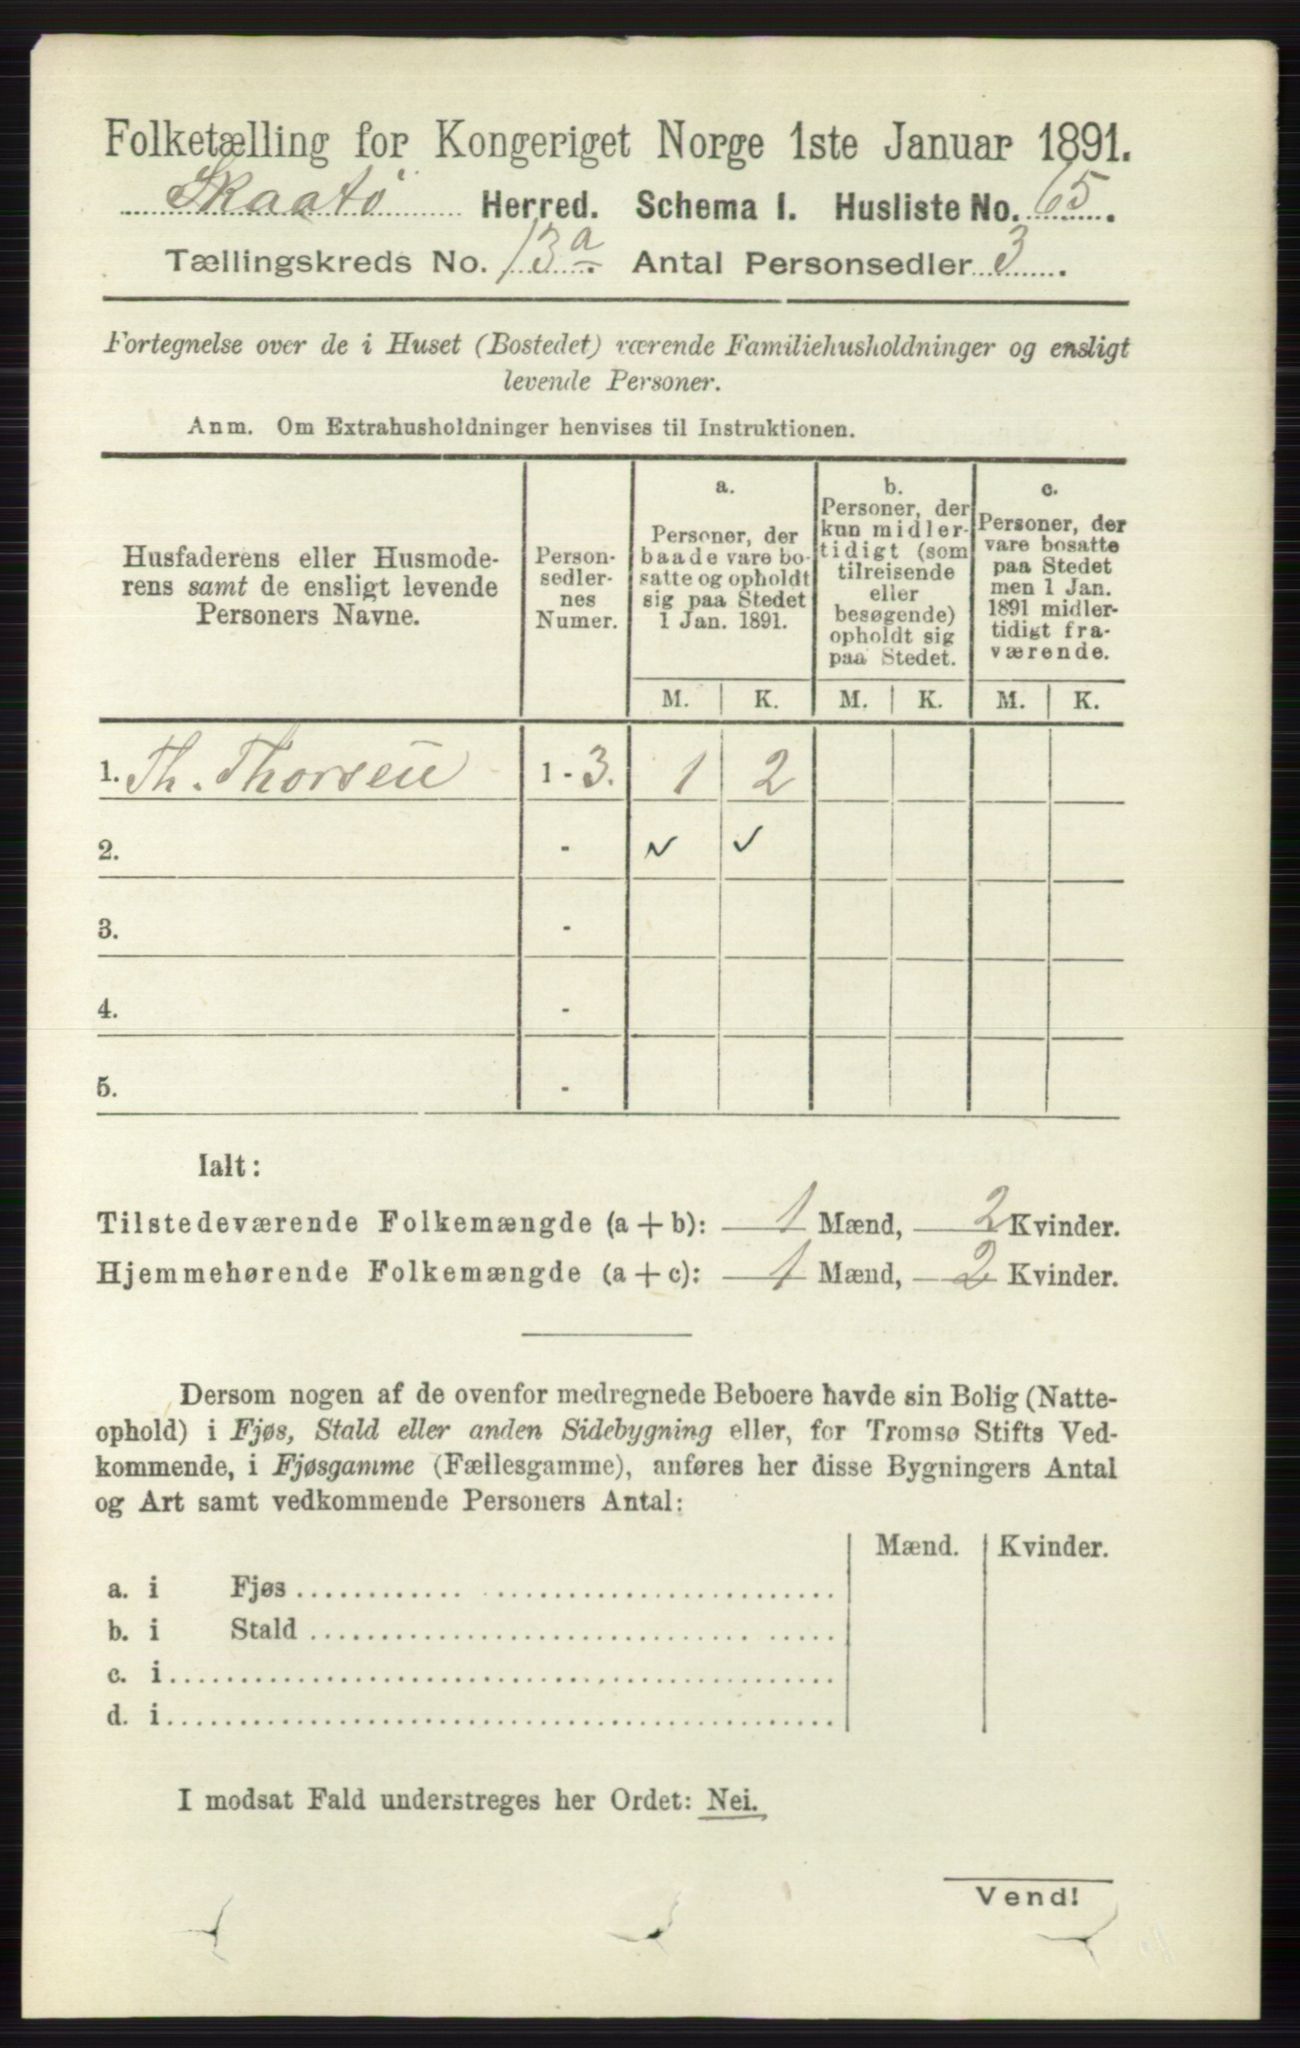 Folketælling for Kongeriget Norge 1ste Januar 1891.
Skaatø Herred. Schema I. Husliste No. 65.
Tællingskreds No. 13a. Antal Personsedler 3.
Fortegnelse over de i Huset (Bostedet) værende Familiehusholdninger og ensligt
levende Personer.
Anm. Om Extrahusholdninger henvises til Instruktionen.
Husfaderens eller Husmode-
rens samt de ensligt levende
Personers Navne.
Person-
sedler-
nes
Numer.
a.
Personer, der
baade vare bo-
satte og opholdt
sig paa Stedet
1 Jan. 1891.
b.
Personer, der
kun midler-
tidigt (som
tilreisende
eller
besøgende)
opholdt sig
paa Stedet.
c.
Personer, der
vare bosatte
paa Stedet
men 1 Jan.
1891 midler-
tidigt fra-
værende.
M. K. M. K. M. K.
1. Th. Thorsen 1 - 3. 1 2
2. - ✓ ✓
3. -
4. -
5. -
Ialt:
Tilstedeværende Folkemængde (a + b): 1 Mænd, 2 Kvinder.
Hjemmehørende Folkemængde (a + c): 1 Mænd, 2 Kvinder.
Dersom nogen af de ovenfor medregnede Beboere havde sin Bolig (Natte-
ophold) i Fjøs, Stald eller anden Sidebygning eller, for Tromsø Stifts Ved-
kommende, i Fjøsgamme (Fællesgamme), anføres her disse Bygningers Antal
og Art samt vedkommende Personers Antal:
Mænd. Kvinder.
a. i Fjøs
b. i Stald
c. i
d. i
I modsat Fald understreges her Ordet: Nei.
Vend!